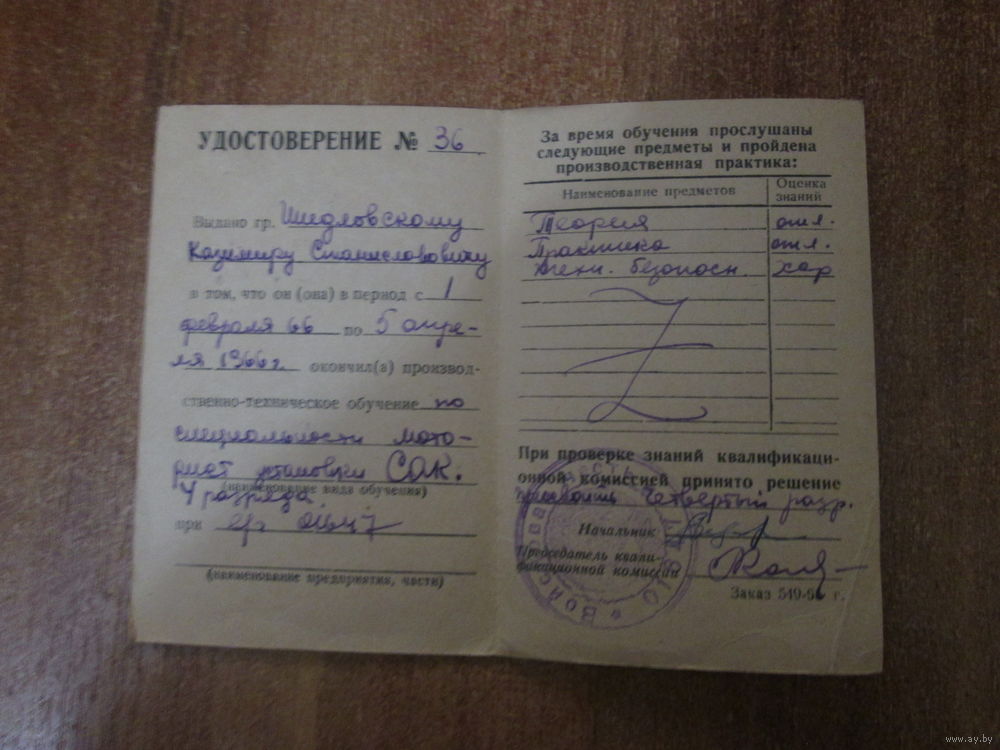 УДОСТОВЕРЕНИЕ № 36
Выдано гр. Шидловскому
Казимиру Станиславовичу
в том, что он (она) в период с 1
февраля 66 по 5 апре-
ля 1966 г. окончил(а) производ-
ственно-техническое обучение по
специальности мото-
рист установки САК.
(наименование вида обучения)
4 разряда
при
(наименование предприятия, части)
За время обучения прослушаны
следующие предметы и пройдена
производственная практика:
Наименование предметов Оценка знаний
Теория отл.
Практика отл.
Техн. безопасн. хор
При проверке знаний квалификаци-
онной комиссией принято решение
присвоить четвертый разр.
Начальник
Председатель квали-
фикационной комиссии
Заказ 549-
www.ay.by